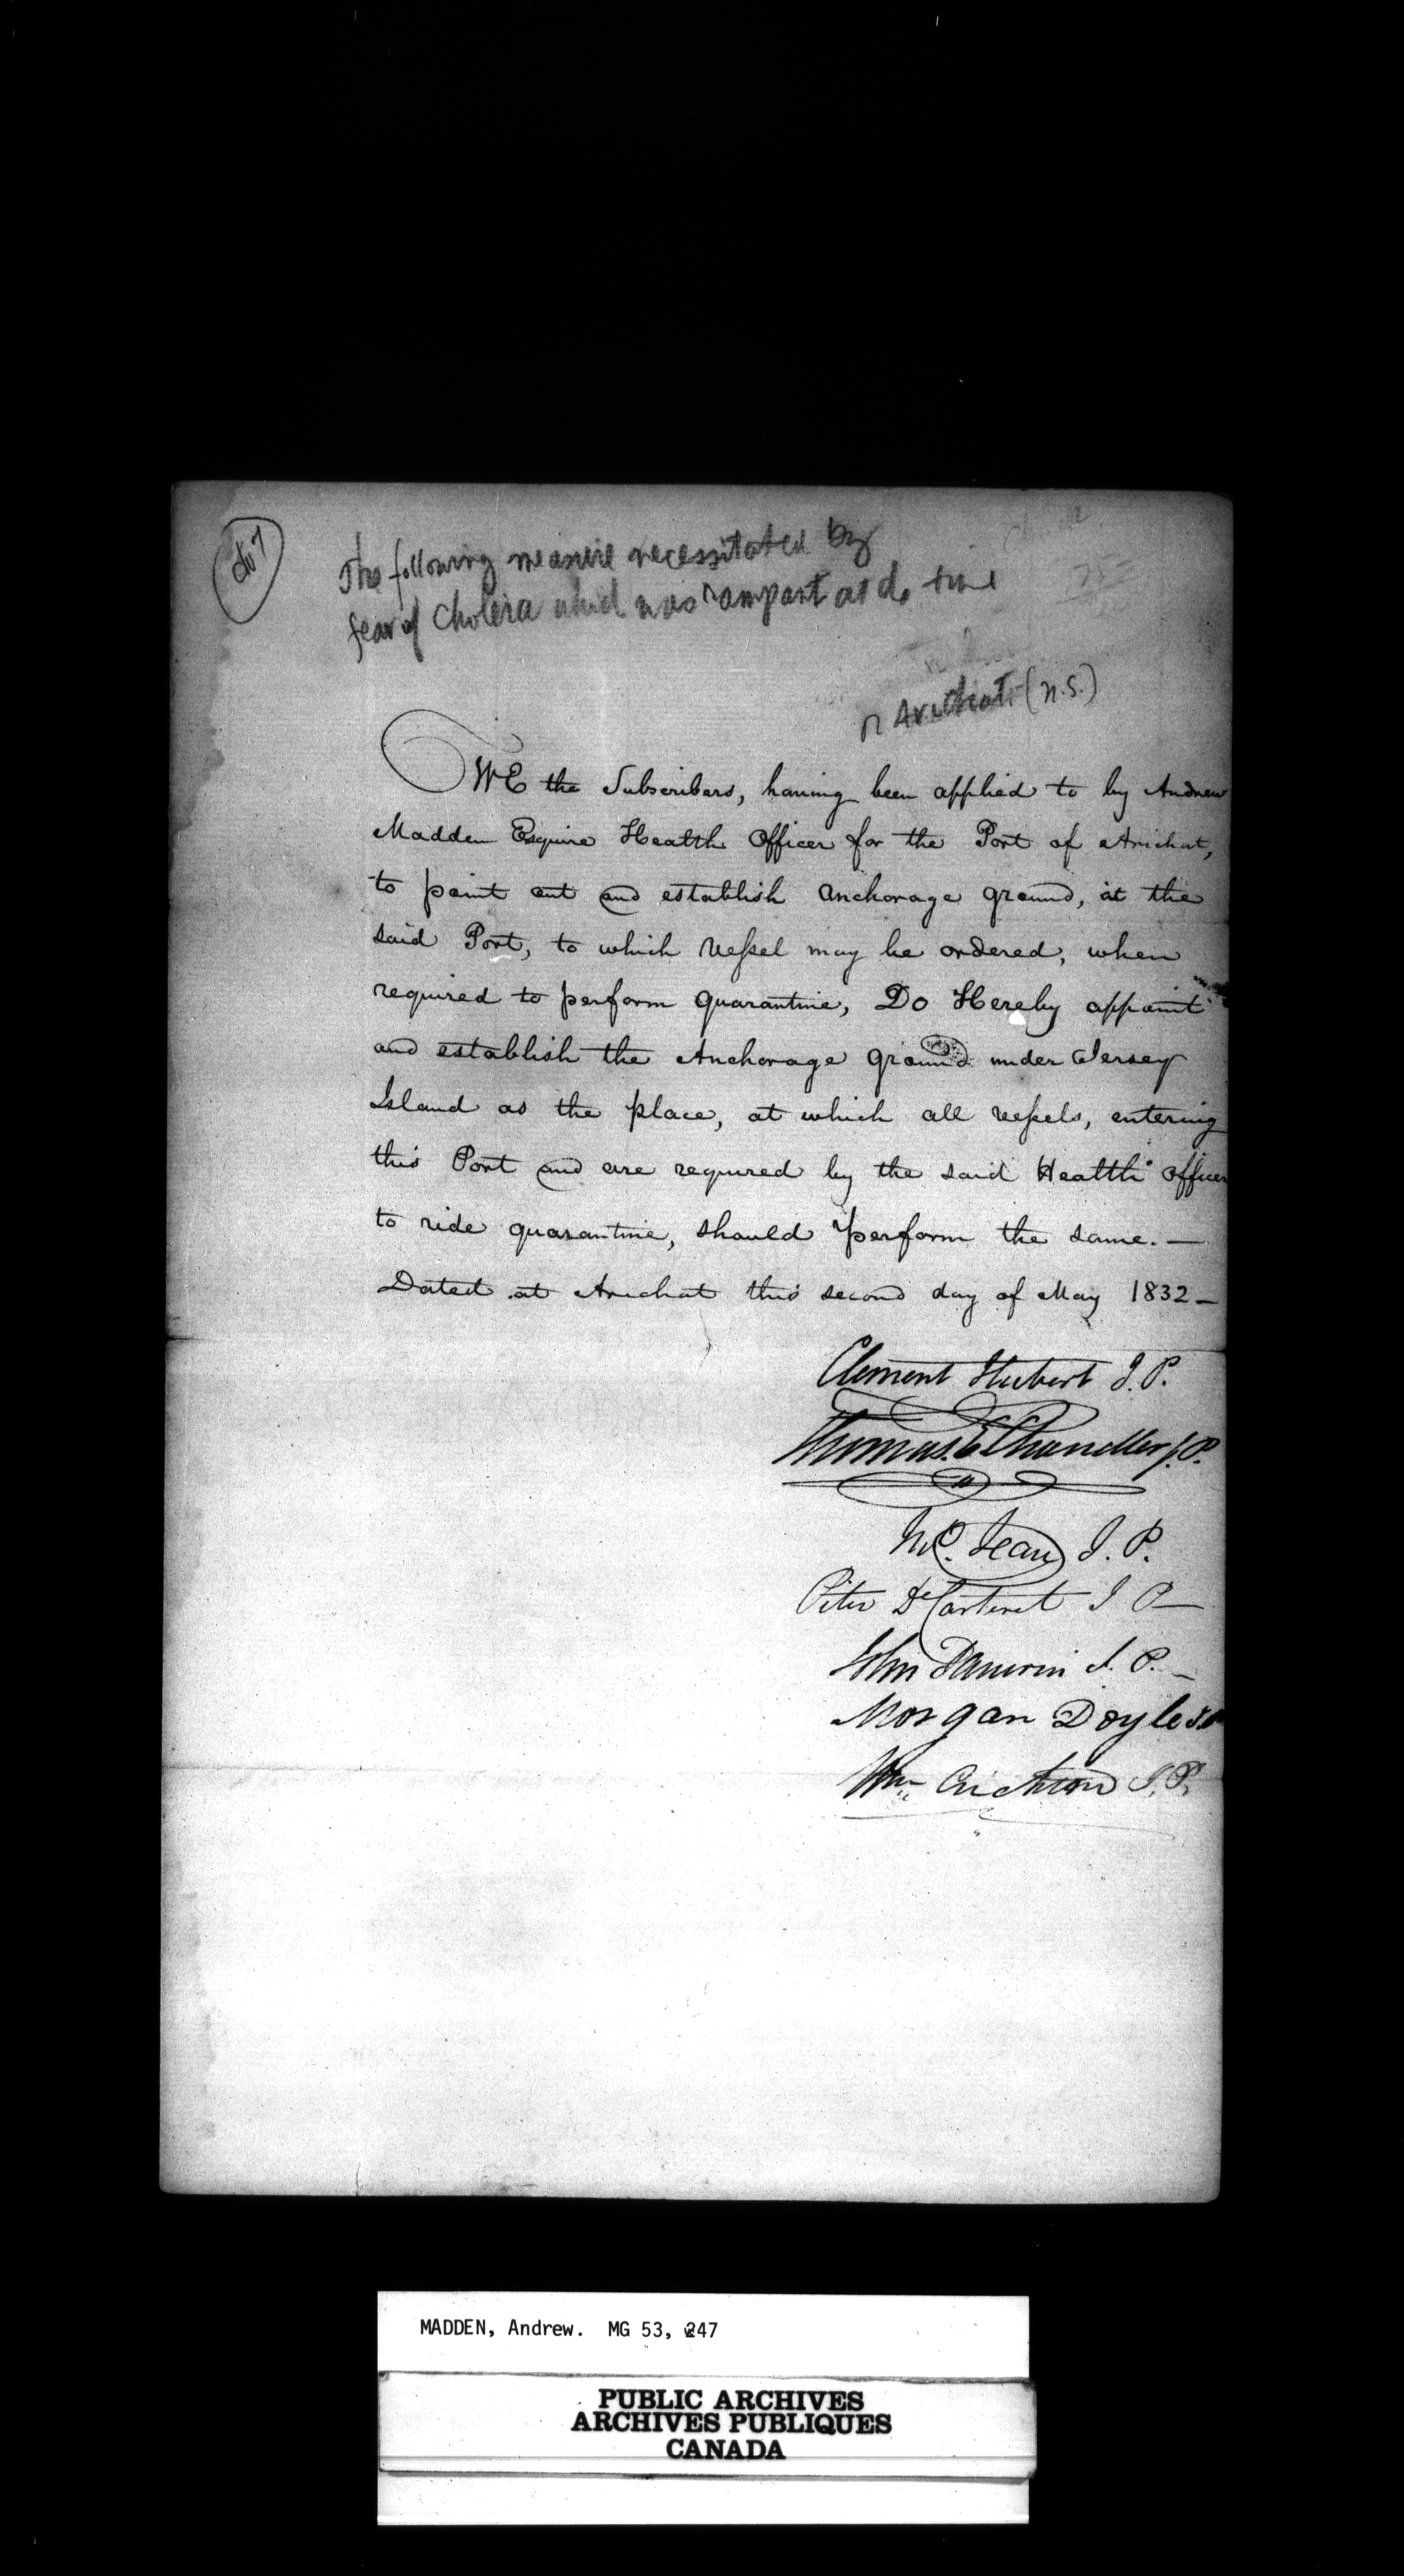 The following measure necessitated by
fear of Cholera which was rampant at do time
Arichat (N.S.)
WE the Subscribers, having been applied to by Andrew
Madden Esquire Health Officer for the Port of Arichat,
to point out and establish anchorage ground, at the
said Port, to which Vessel may be ordered, when
required to perform quarantine, Do Hereby appoint
and establish the Anchorage ground under Jersey
Island as the place, at which all vessels, entering
this Port and are required by the said Health Officer
to ride quarantine, should perform the same. —
Dated at Arichat this second day of May 1832 —
Clement Hubert J.P.
Thomas E Chandler J.P.
Jean J. P.
Peter De Carteret J P —
John J. P. —
Morgan Doyle J.P
Wm Crichton J.P.
MADDEN, Andrew. MG 53, 247
PUBLIC ARCHIVES
ARCHIVES PUBLIQUES
CANADA